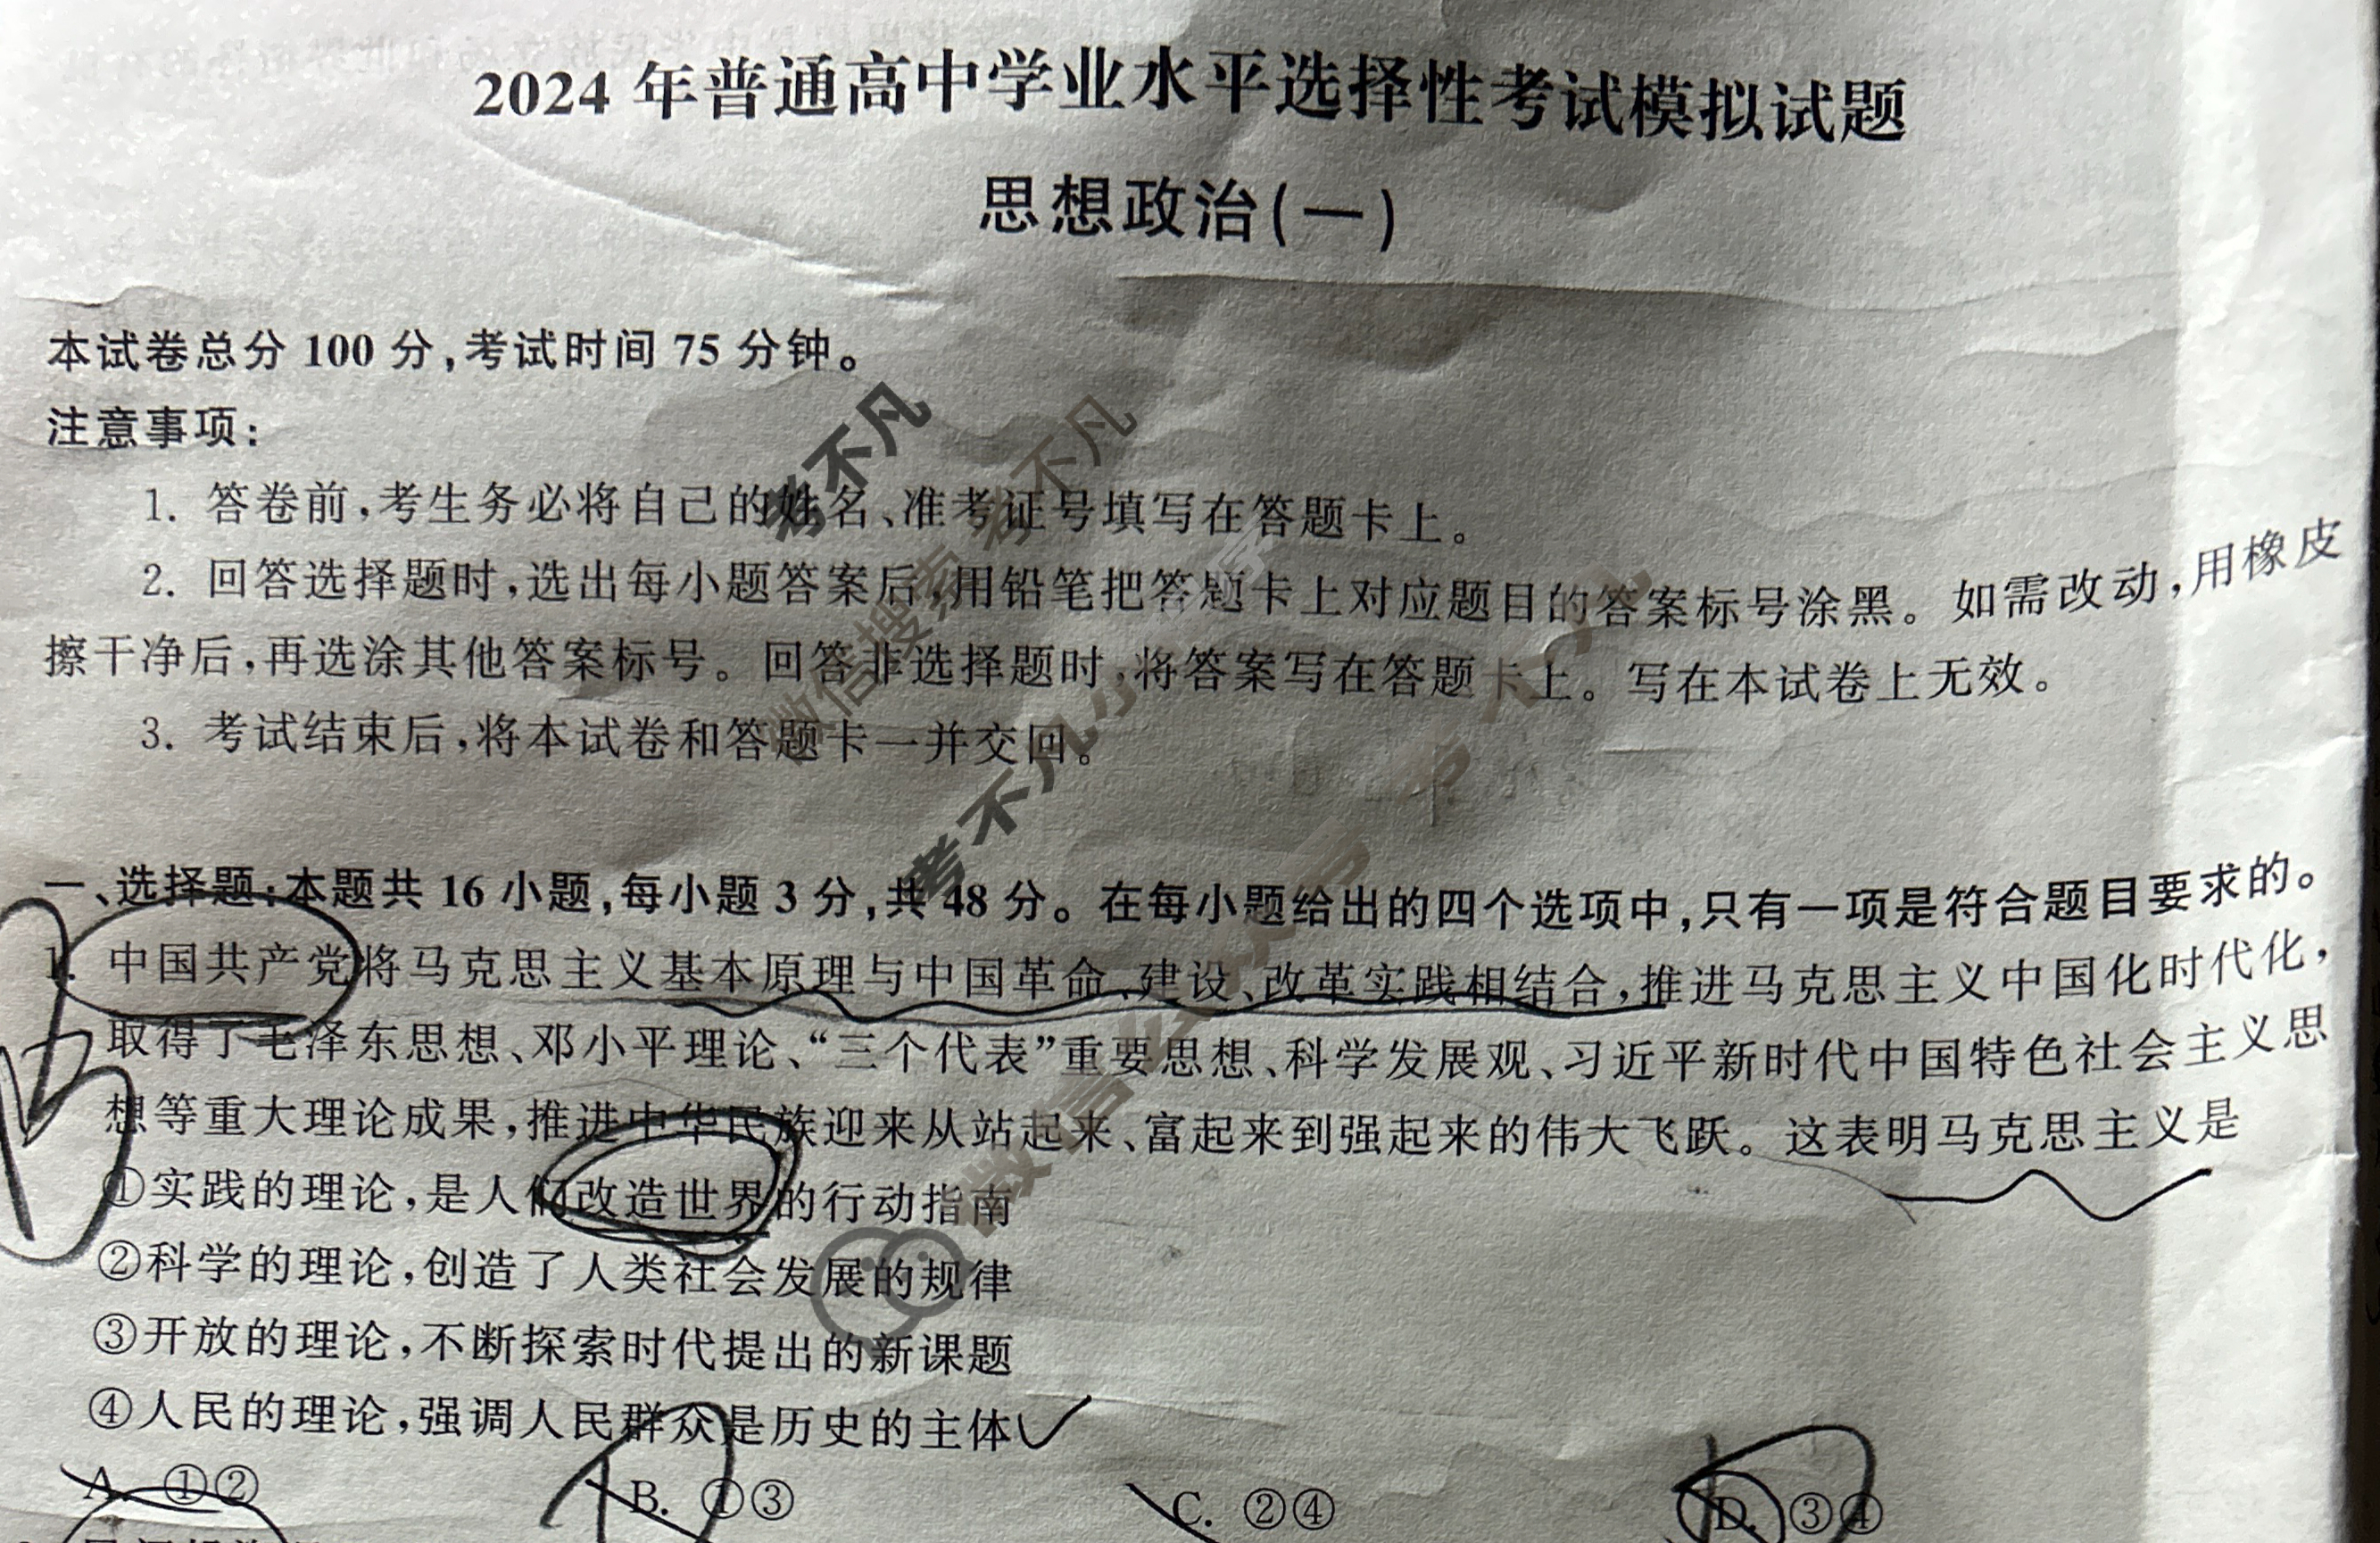 2024 年普通高中学业水平选择性考试模拟试题
思想政治(一)
本试卷总分 100 分,考试时间 75 分钟。
注意事项:
1. 答卷前,考生务必将自己的姓名、准考证号填写在答题卡上。
2. 回答选择题时,选出每小题答案后,用铅笔把答题卡上对应题目的答案标号涂黑。如需改动,用橡皮
擦干净后,再选涂其他答案标号。回答非选择题时,将答案写在答题卡上。写在本试卷上无效。
3. 考试结束后,将本试卷和答题卡一并交回。
一、选择题:本题共 16 小题,每小题 3 分,共 48 分。在每小题给出的四个选项中,只有一项是符合题目要求的。
1. 中国共产党将马克思主义基本原理与中国革命、建设、改革实践相结合,推进马克思主义中国化时代化,
取得了毛泽东思想、邓小平理论、“三个代表”重要思想、科学发展观、习近平新时代中国特色社会主义思
想等重大理论成果,推进中华民族迎来从站起来、富起来到强起来的伟大飞跃。这表明马克思主义是
①实践的理论,是人们改造世界的行动指南
②科学的理论,创造了人类社会发展的规律
③开放的理论,不断探索时代提出的新课题
④人民的理论,强调人民群众是历史的主体
A. ①② B. ①③ C. ②④ D. ③④
考不凡
微信搜索 考不凡
考不凡小
微信公众号 考不凡